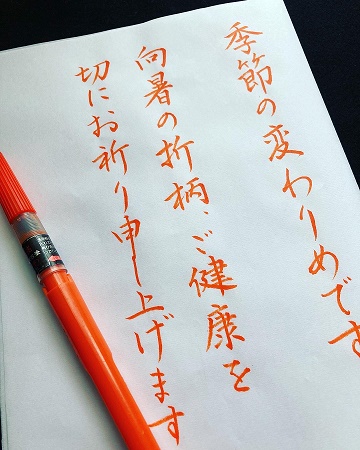 季節の変わりめです
向暑の折柄、ご健康を
切にお祈り申し上げます